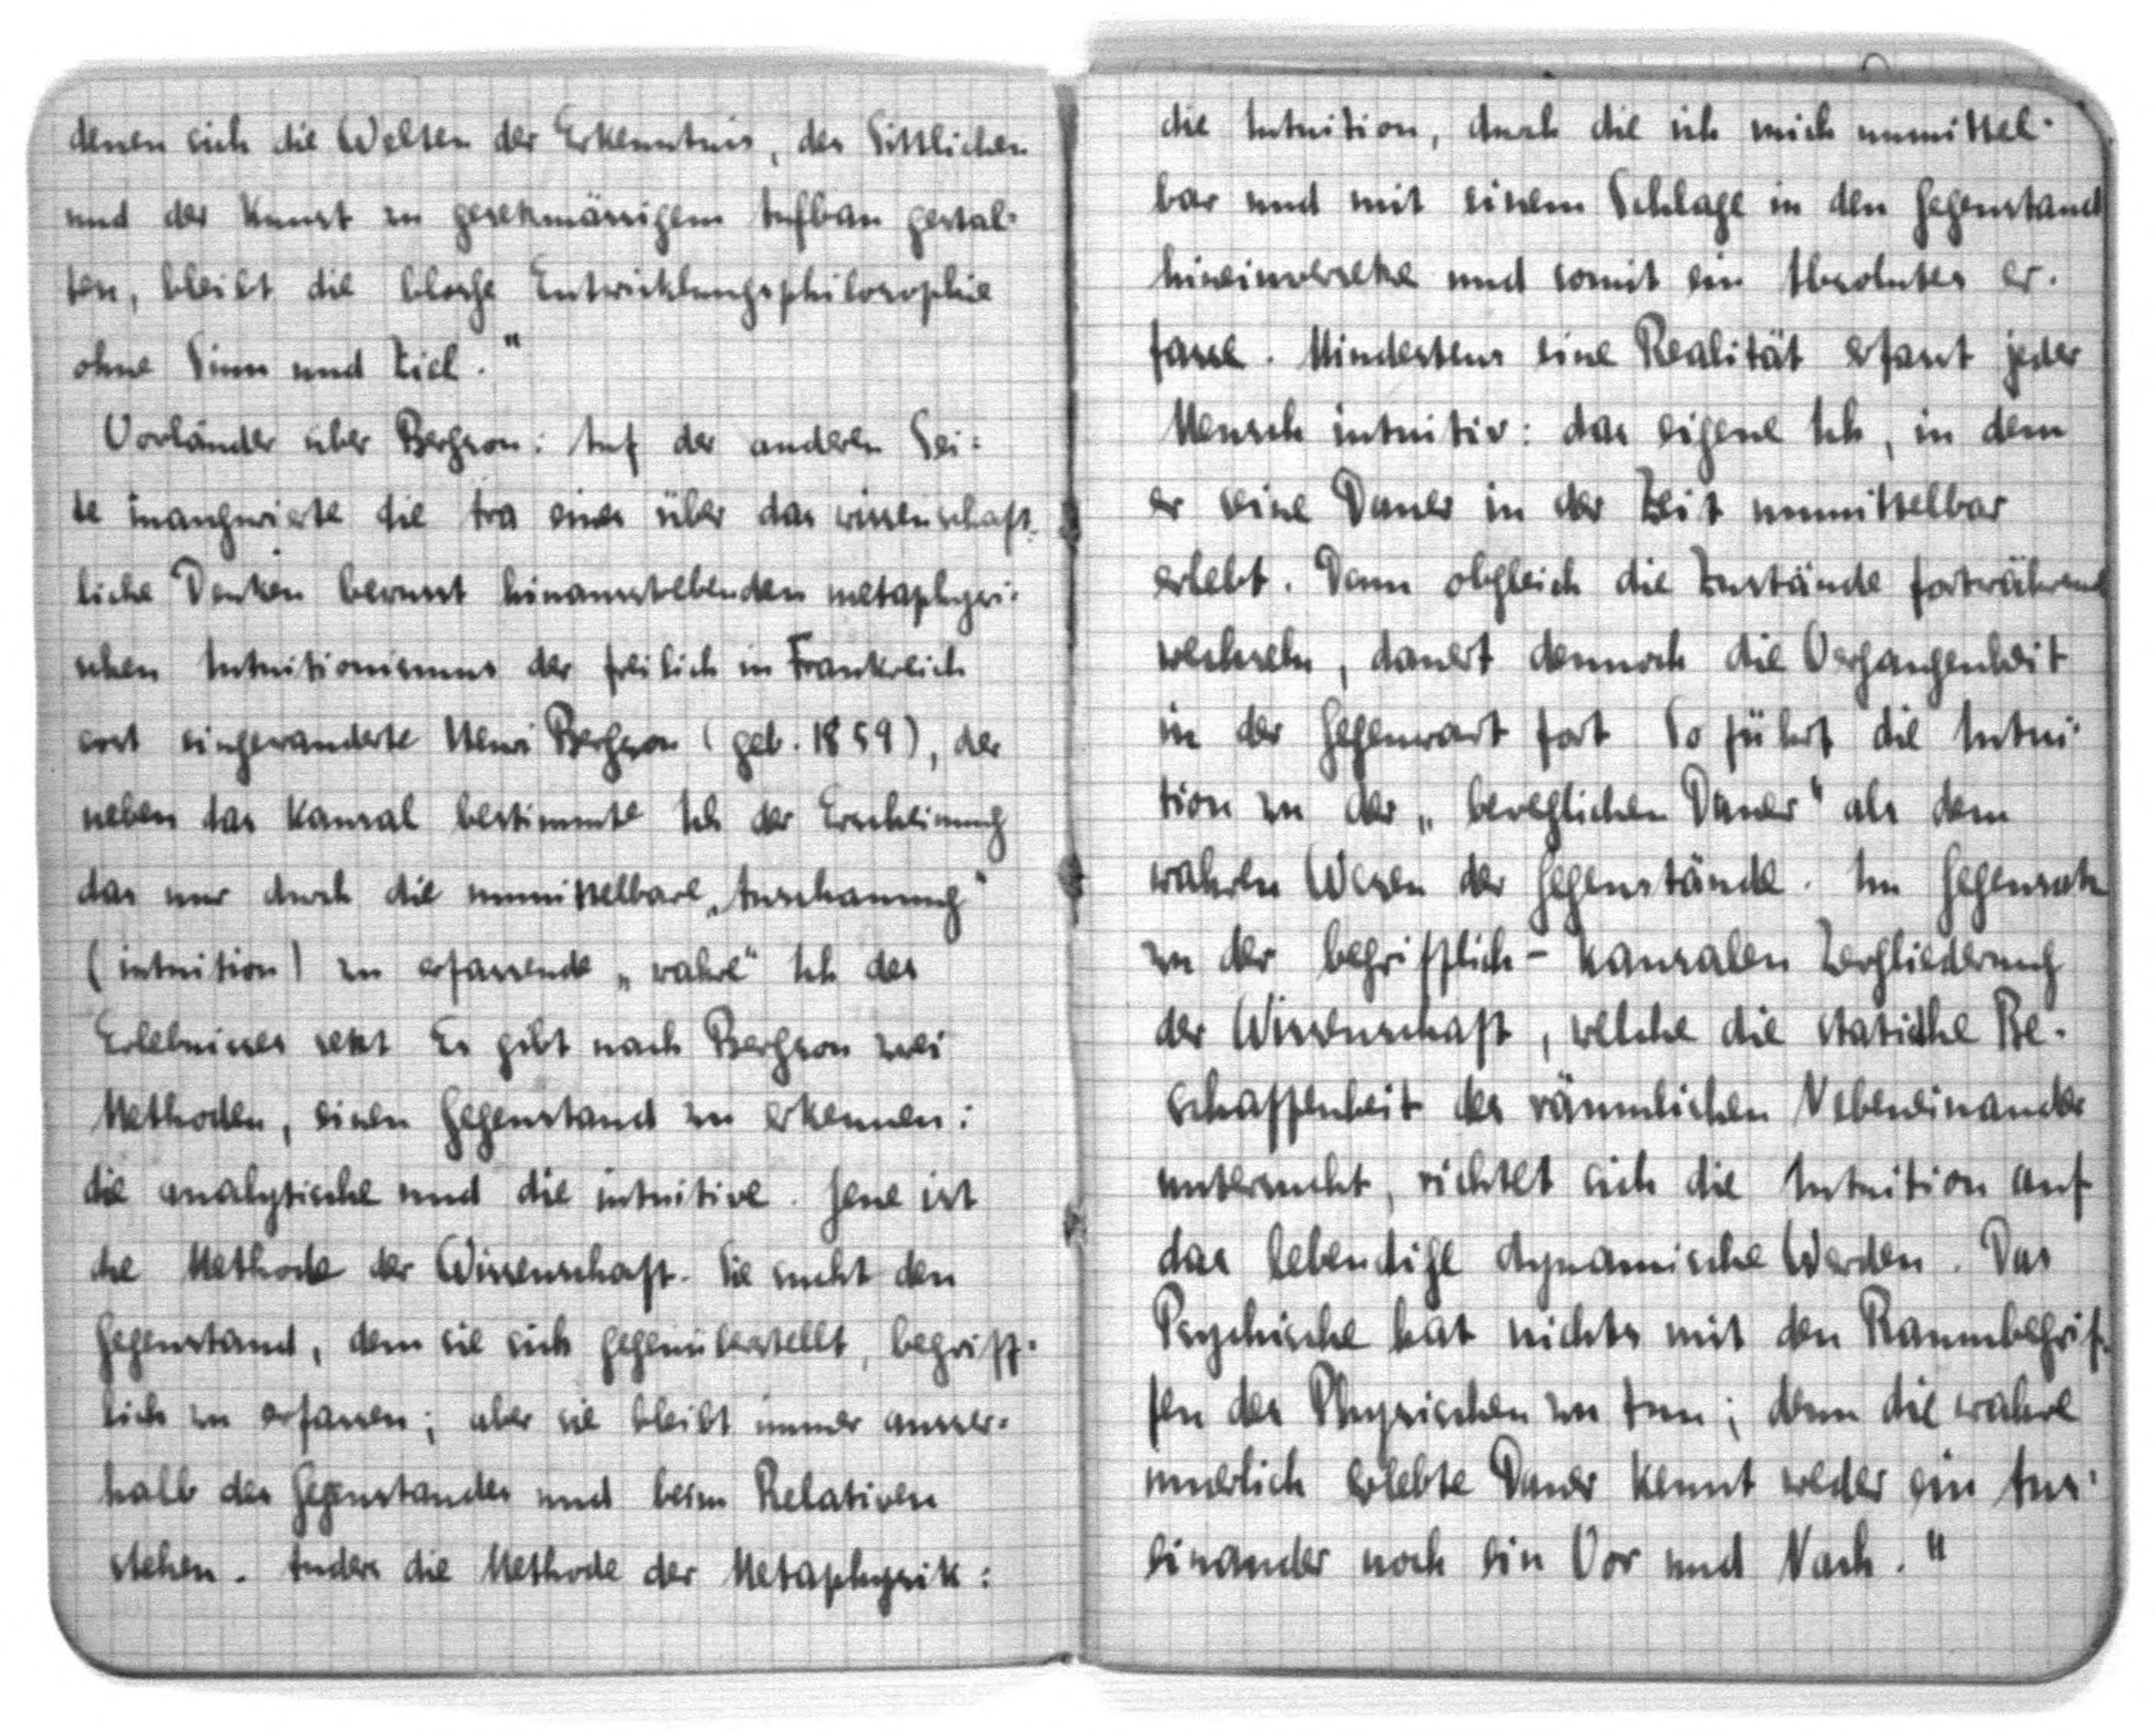 denen sich die Welten der Erkenntnis, des Sittlichen
und der Kunst zu gesetzmässigem Aufbau gestal-
ten, bleibt die blosse Entwicklungsphilosophie
ohne Sinn und Ziel."
Vorländer über Bergson: Auf der anderen Sei-
te inaugurierte die Ära eines über das wissenschaft-
liche Denken bewusst hinausstrebenden metaphysi-
schen Intuitionismus der freilich in Frankreich
erst eingewanderte Henri Bergson (geb. 1859), der
neben das kausal bestimmte Ich der Erscheinung
das nur durch die unmittelbare „Anschauung"
(intuition) zu erfassende „wahre" Ich des
Erlebnisses setzt Es gibt nach Bergson zwei
Methoden, einen Gegenstand zu erkennen:
die analytische und die intuitive. Jene ist
die Methode der Wissenschaft. Sie sucht den
Gegenstand, dem sie sich gegenüberstellt, begriff-
lich zu erfassen; aber sie bleibt immer ausser-
halb des Gegenstandes und beim Relativen
stehen. Anders die Methode der Metaphysik:
die Intuition, durch die ich mich unmittel-
bar und mit einem Schlage in den Gegenstand
hineinversetze und somit ein Absolutes er-
fasse. Mindestens eine Realität erfasst jeder
Mensch intuitiv: das eigene Ich, in dem
er seine Dauer in der Zeit unmittelbar
erlebt. Denn obgleich die Zustände fortwährend
wechseln, dauert dennoch die Vergangenheit
in der Gegenwart fort So führt die Intui-
tion zu der „beweglichen Dauer" als dem
wahren Wesen der Gegenstände. Im Gegensatz
zu der begrifflich-kausalen Zergliederung
der Wissenschaft, welche die statische Be-
schaffenheit des räumlichen Nebeneinander
untersucht, richtet sich die Intuition auf
das lebendige dynamische Werden. Das
Psychische hat nichts mit den Raumbegrif-
fen des Physischen zu tun; denn die wahre
innerlich erlebte Dauer kennt weder ein Aus-
einander noch ein Vor und Nach."